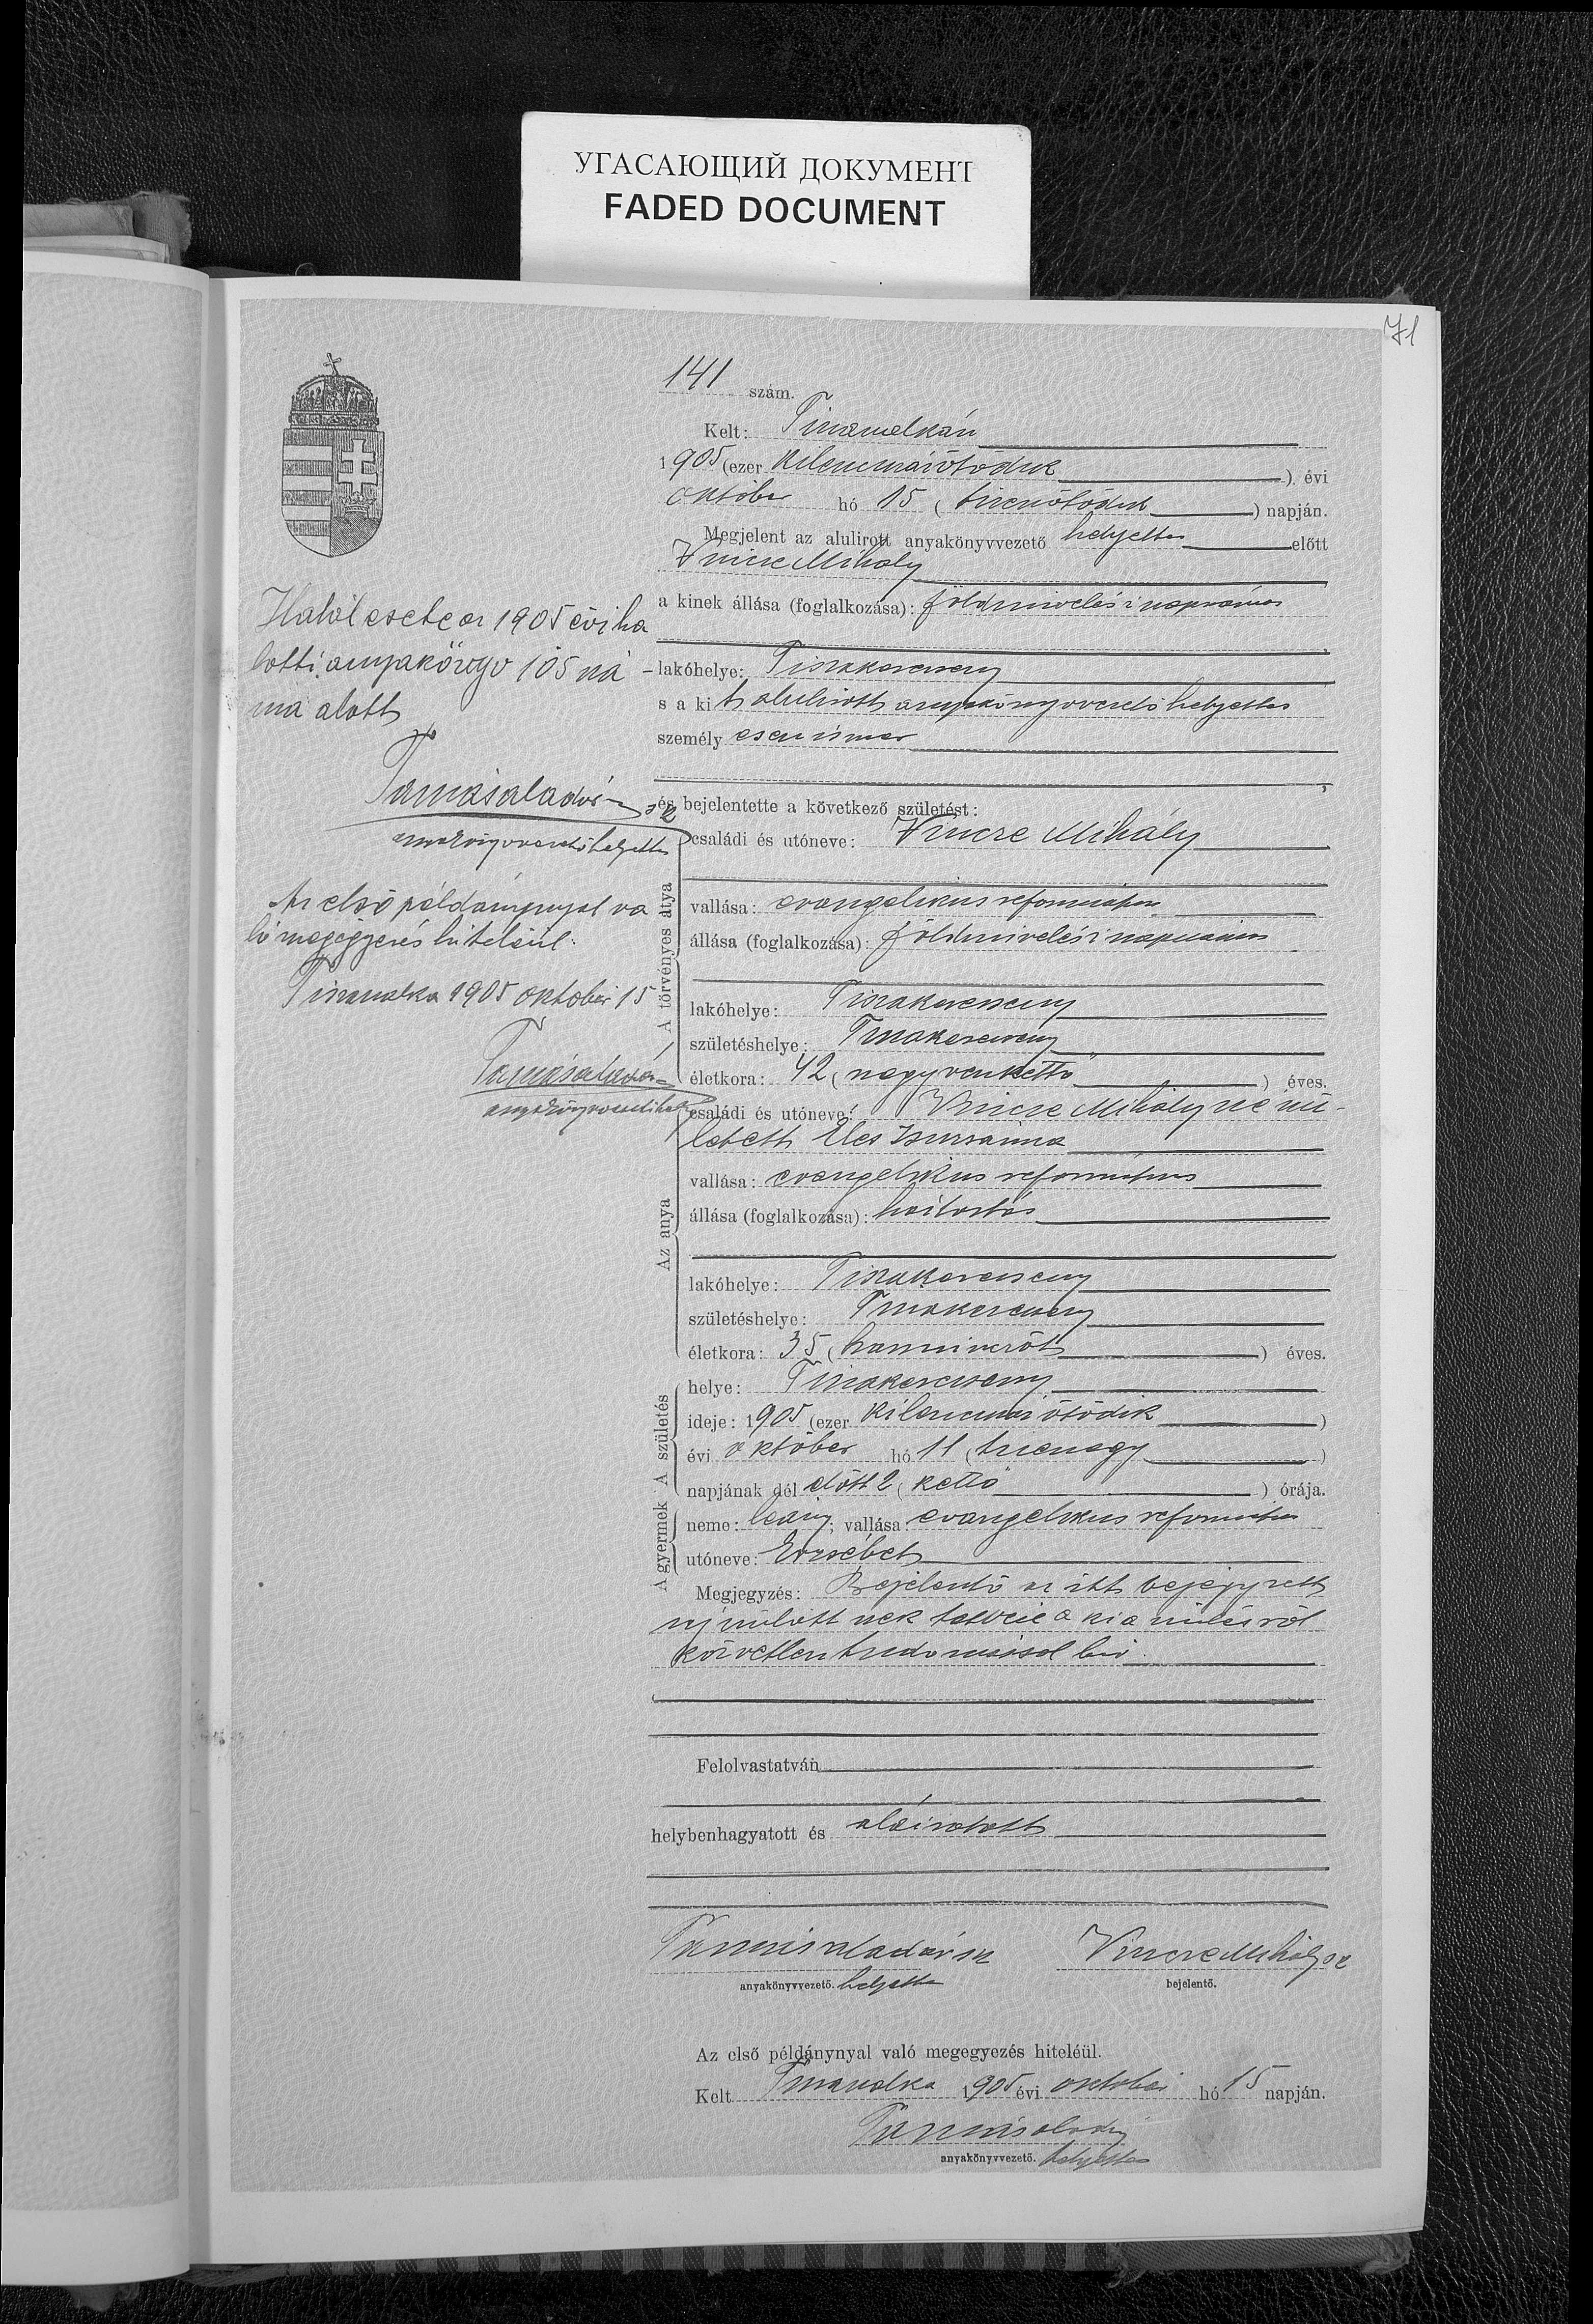 УГАСАЮЩИЙ ДОКУМЕНТ
FADED DOCUMENT
71
141 szám.
Kelt: Tiszaszalkán
1905 (ezer kilenczszázötödik ) évi
október hó 15 ( tizenötödik ) napján.
Megjelent az alulirott anyakönyvvezető helyettes előtt
Vincze Mihály
a kinek állása (foglalkozása): földmivelési napszámos
lakóhelye: Tiszakerecseny
s a kit alulirott anyakönyvvezető helyettes
személyesen ismer
és bejelentette a következő születést:
A törvényes atya
családi és utóneve: Vincze Mihály
vallása: evangelikus református
állása (foglalkozása): földmivelési napszámos
lakóhelye: Tiszakerecseny
születéshelye: Tiszakerecseny
életkora: 42 ( negyvenkettő ) éves.
Az anya
családi és utóneve: Vincze Mihályné szü-
letett Éles Zsuzsánna
vallása: evangelikus református
állása (foglalkozása): háztartás
lakóhelye: Tiszakerecseny
születéshelye: Tiszakerecseny
életkora: 35 ( harminczöt ) éves.
A születés
helye: Tiszakerecseny
ideje: 1905 (ezer kilenczszázötödik )
évi október hó 11 ( tizenegy )
napjának dél előtt 2 ( kettő ) órája.
A gyermek
neme: leány; vallása: evangelikus református
utóneve: Erzsébet
Megjegyzés: Bejelentő az itt bejegyzett
ujszülöttnek a ki a szülésről
közvetlen tudomással bir.
Felolvastatván
helybenhagyatott és aláiratott
Tamás Aladár sk
anyakönyvvezető. helyettes
Vincze Mihály sk
bejelentő.
Az első példánynyal való megegyezés hiteléül.
Kelt Tiszaszalka 1905 évi október hó 15 napján.
Tamás Aladár
anyakönyvvezető. helyettes
Halálesete az 1905 évi ha
lotti anyakönyv 105 szá
ma alatt
Tamás Aladár sk
anyakönyvvezető helyettes
Az első példánynyal va
ló megegyezés hiteléül:
Tiszaszalka 1905 október 15
Tamás Aladár
anyakönyvvezető hely